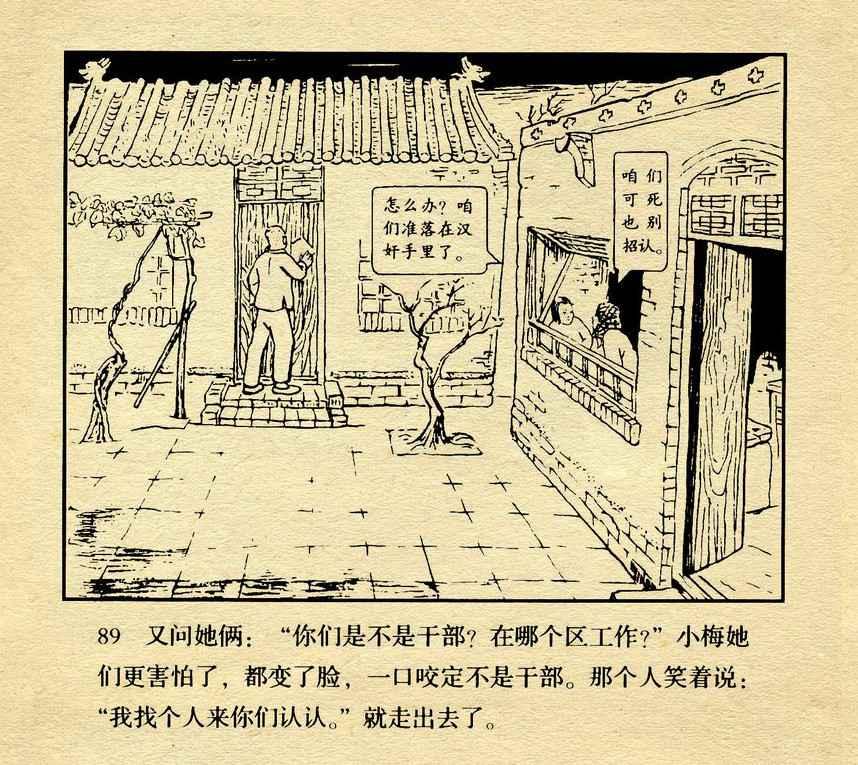 怎么办？咱
们准落在汉
奸手里了。
咱们
可死
也别
招认。
89 又问她俩：“你们是不是干部？在哪个区工作？”小梅她
们更害怕了，都变了脸，一口咬定不是干部。那个人笑着说：
“我找个人来你们认认。”就走出去了。